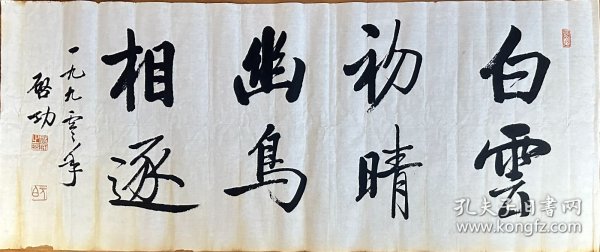 白雲
初晴
幽鳥
相逐
一九九零年
啓功
孔夫子旧书网
www.kongfz.com